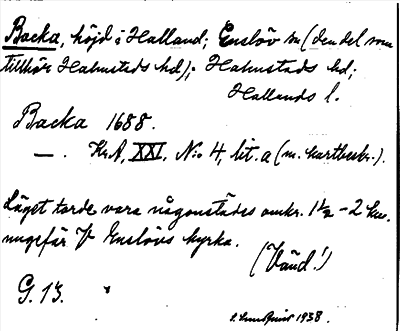 Backa, höjd i Halland; Enslöv sn (den del som
tillhör Halmstads hd); Halmstads hd;
Hallands l.
Backa 1688.
— . Kr.A, XXI, N:o 4, lit. a (m. kartbeskr.).
Läget torde vara någonstädes omkr. 1½ - 2 km.
ungefär V Enslövs kyrka.
(Vänd!)
G. 13.
1938.